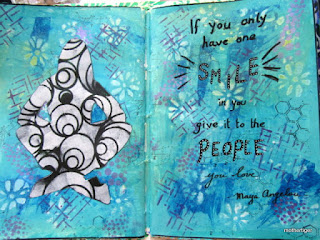 If you only
have one
SMILE
in you
give it to the
PEOPLE
you love.
-Maya Angelou